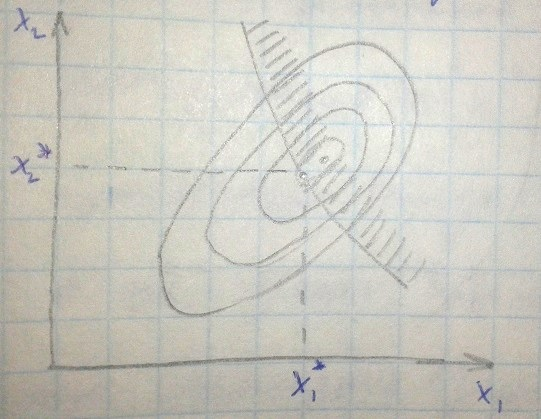 x₂
x₂*
x₁*
x₁